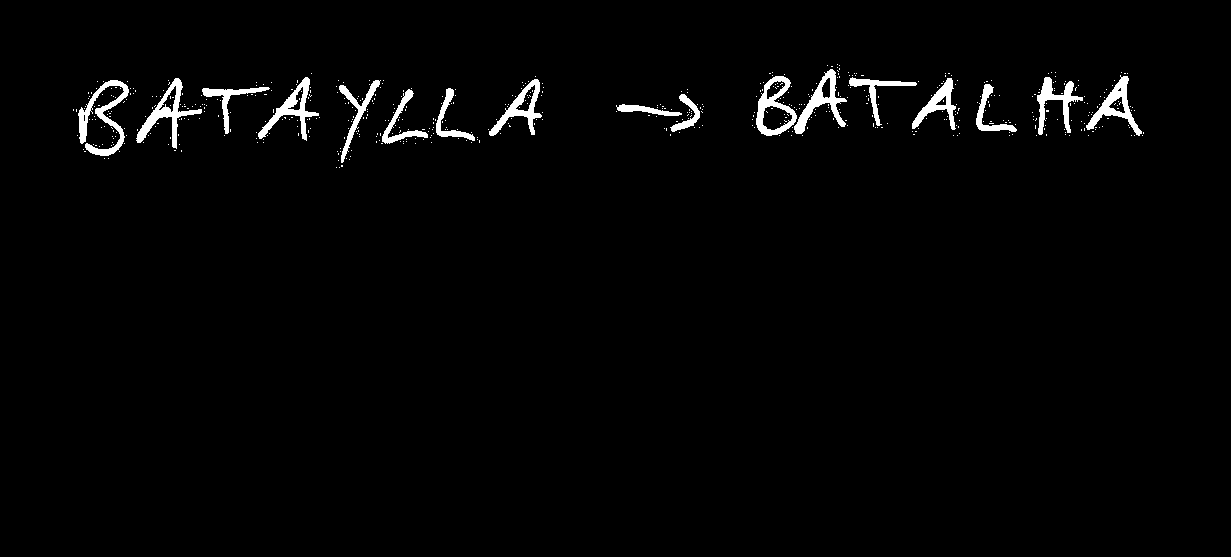 BATAYLLA → BATALHA